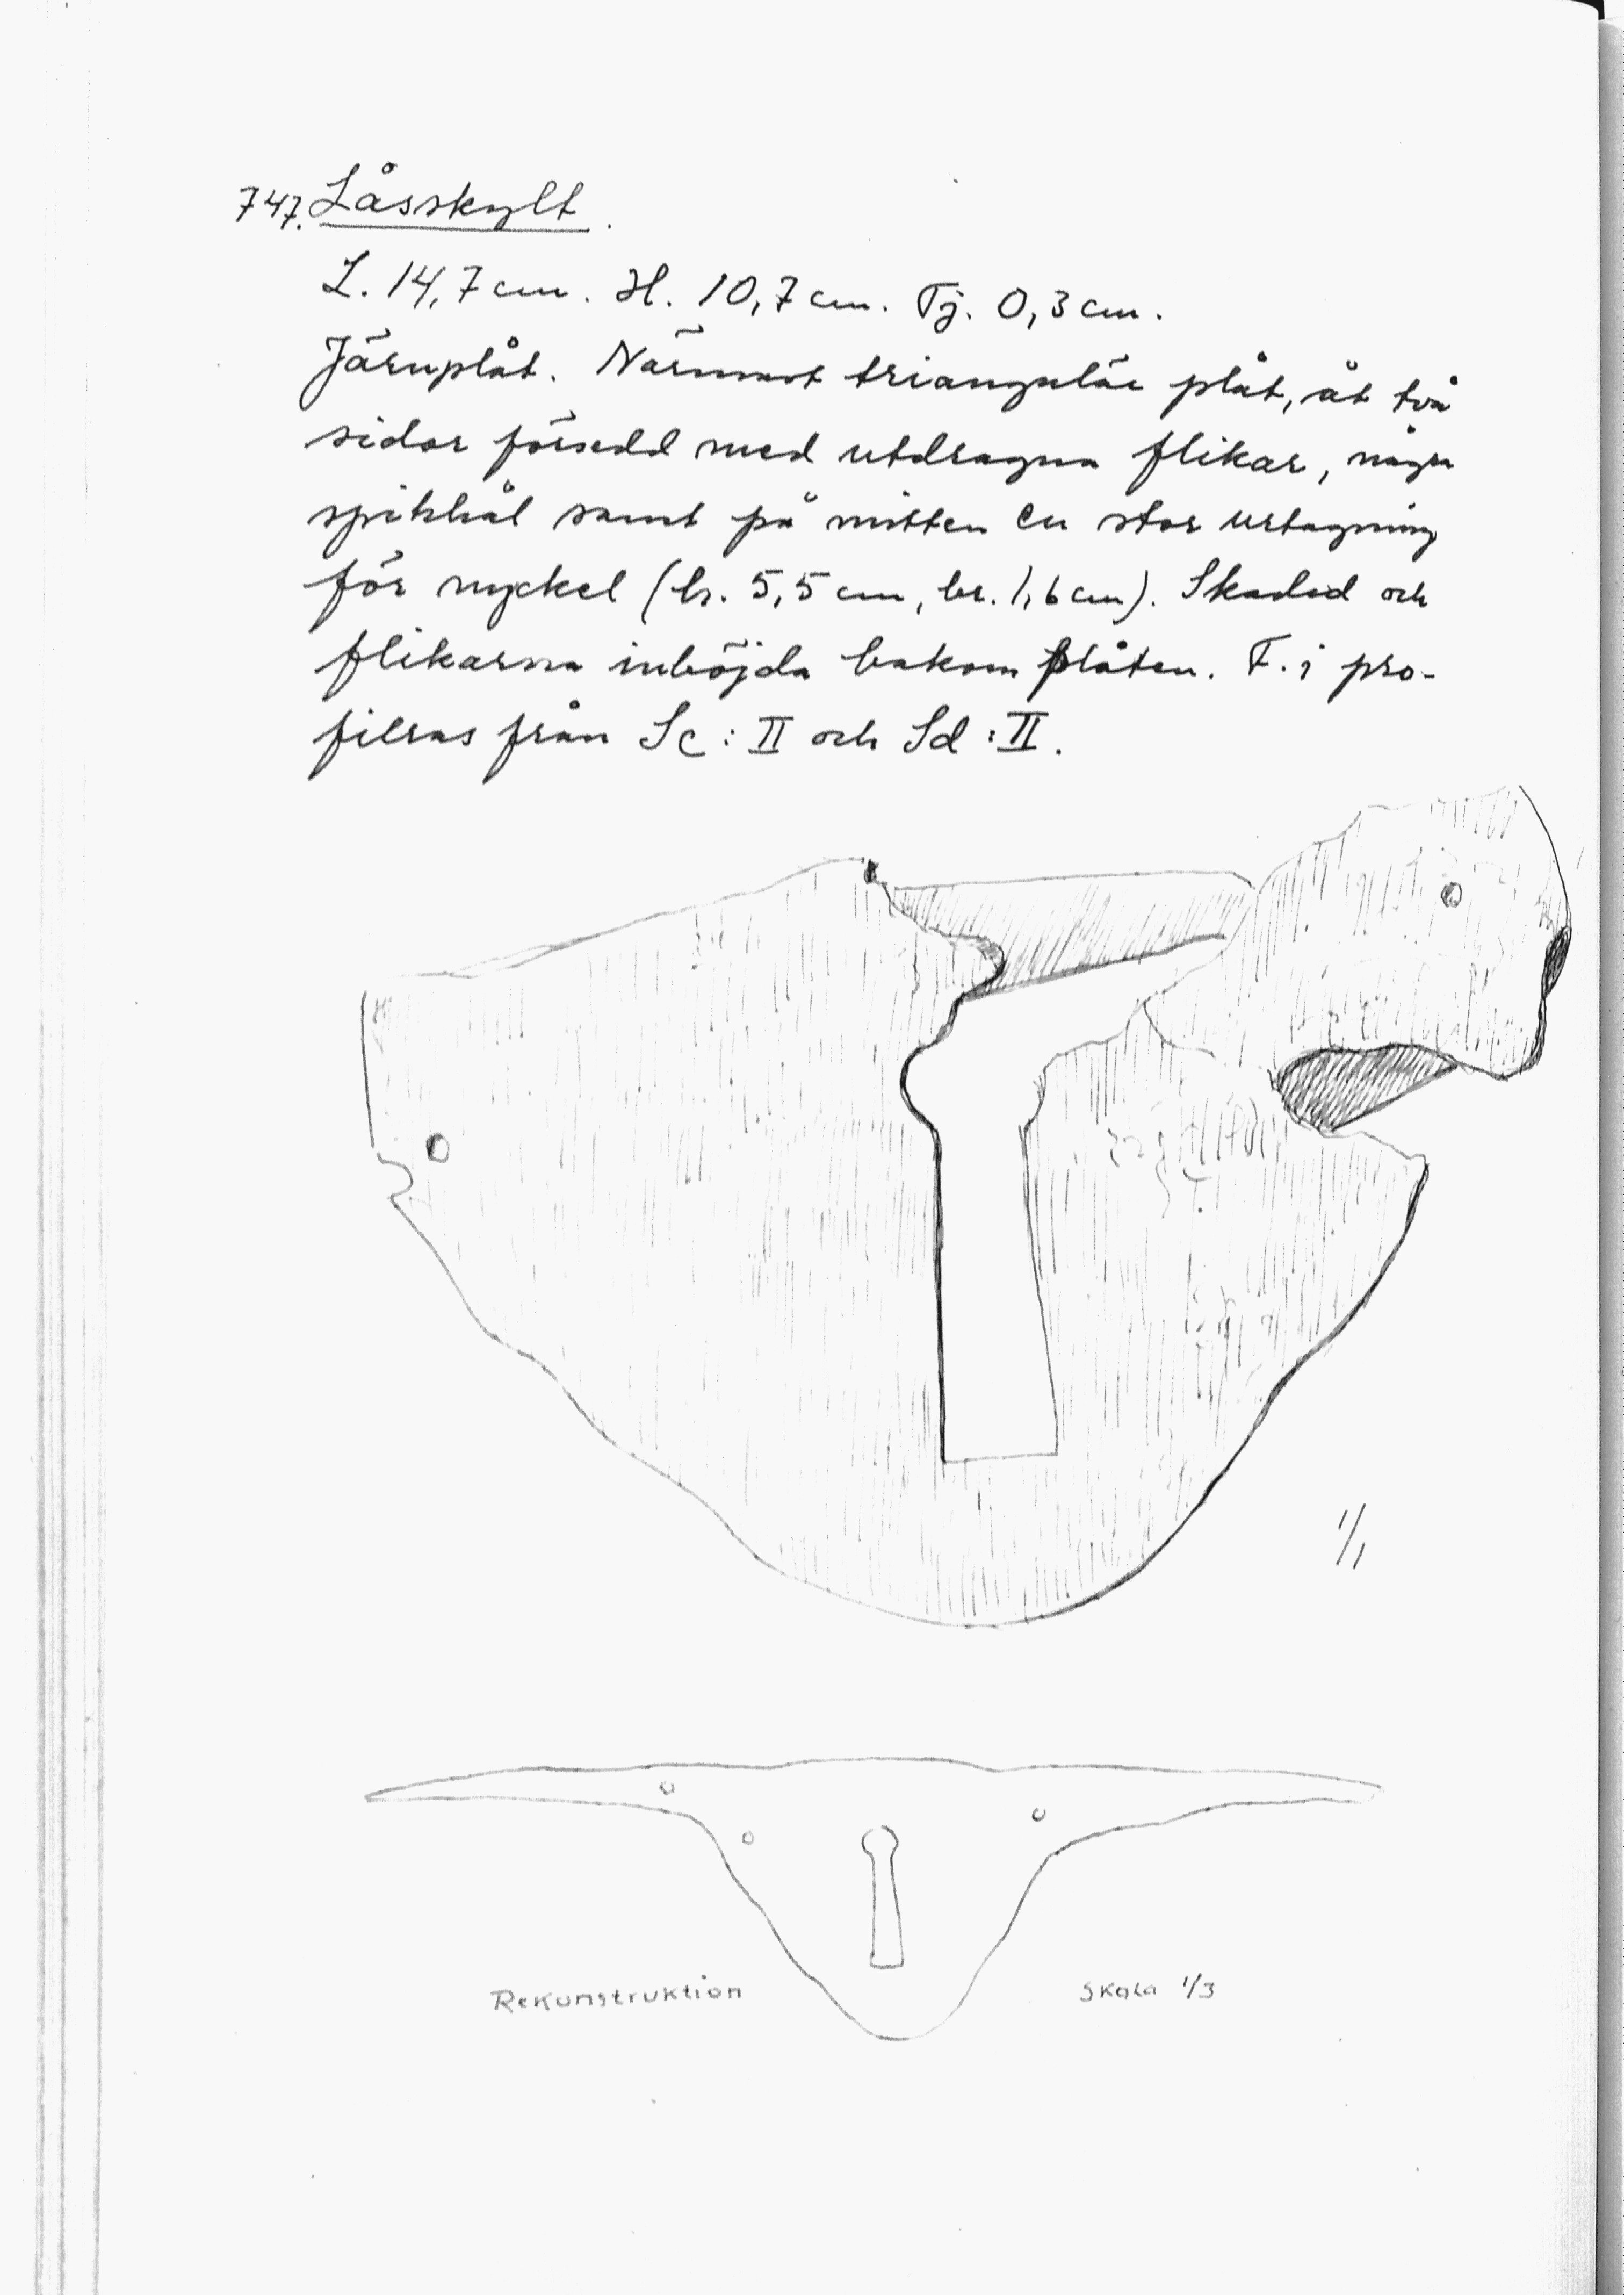 747. Låsskylt.
L. 14,7 cm. H. 10,7 cm. Tj. 0,3 cm.
Järnplåt. Närmast triangulär plåt, åt två
sidor försedd med utdragna flikar, några
spikhål samt på mitten en stor urtagning
för nyckel (h. 5,5 cm, br. 1,6 cm). Skadad och
flikarna inböjda bakom plåten. F. i pro-
filras från Sc: II och Sd: II.
1/1
Rekonstruktion
Skala 1/3